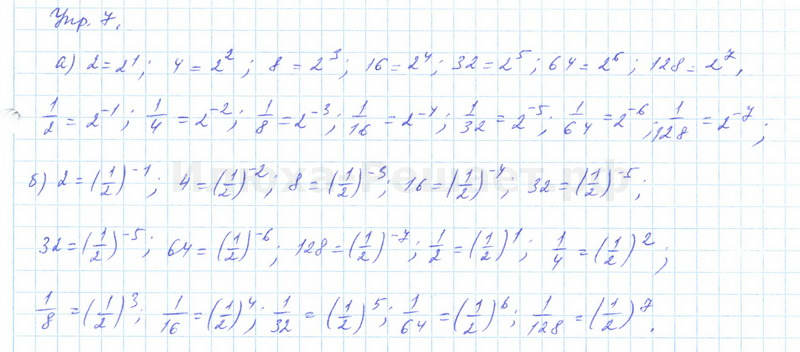 Упр. 7.
а) 2 = 2^1; 4 = 2^2; 8 = 2^3; 16 = 2^4; 32 = 2^5; 64 = 2^6; 128 = 2^7,
1/2 = 2^-1; 1/4 = 2^-2; 1/8 = 2^-3; 1/16 = 2^-4; 1/32 = 2^-5; 1/64 = 2^-6; 1/128 = 2^-7;
б) 2 = (1/2)^-1; 4 = (1/2)^-2; 8 = (1/2)^-3; 16 = (1/2)^-4; 32 = (1/2)^-5;
32 = (1/2)^-5; 64 = (1/2)^-6; 128 = (1/2)^-7; 1/2 = (1/2)^1; 1/4 = (1/2)^2;
1/8 = (1/2)^3; 1/16 = (1/2)^4; 1/32 = (1/2)^5; 1/64 = (1/2)^6; 1/128 = (1/2)^7.